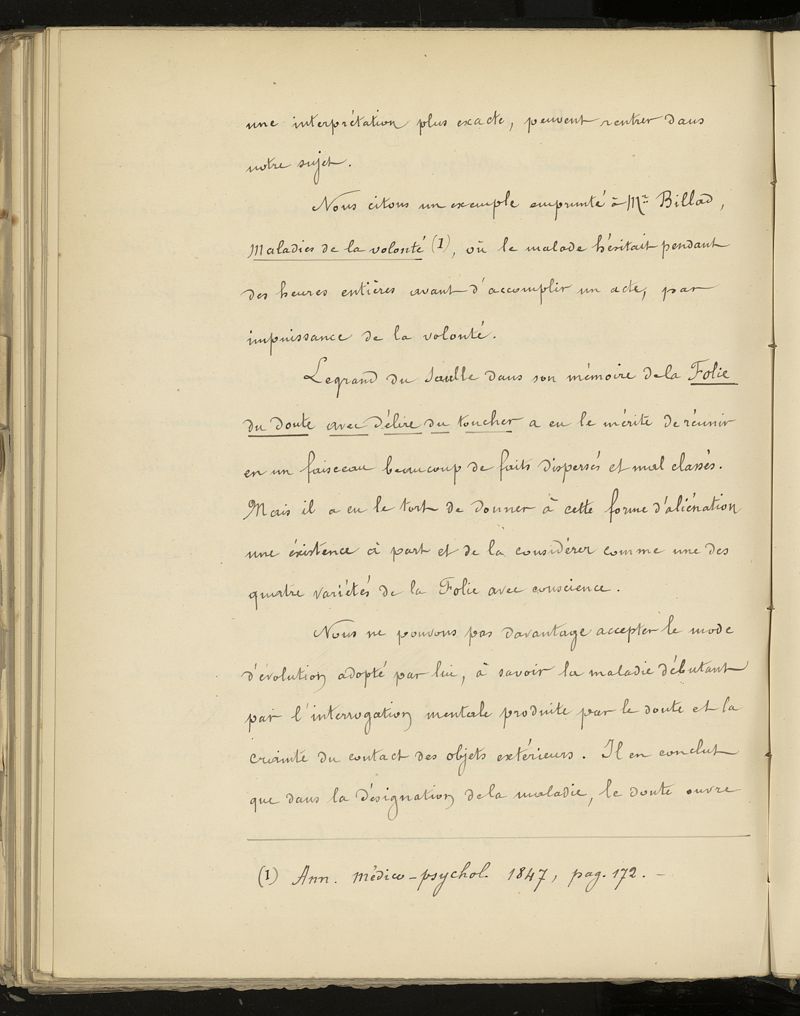 une interprétation plus exacte, peuvent rentrer dans
notre sujet.
Nous citons un exemple emprunté à Mr Billod,
Maladies de la volonté (1), où le malade hésitait pendant
des heures entières avant d'accomplir un acte, par
impuissance de la volonté.
Legrand du Saulle dans son mémoire de la Folie
du doute avec délire du toucher a eu le mérite de réunir
en un faisceau beaucoup de faits dispersés et mal classés.
Mais il a eu le tort de donner à cette forme d'aliénation
une éxistence à part et de la considérer comme une des
quatre variétés de la Folie avec conscience.
Nous ne pouvons pas davantage accepter le mode
d'évolution adopté par lui, à savoir la maladie débutant
par l'interrogation mentale produite par le doute et la
crainte du contact des objets extérieurs. Il en conclut
que dans la désignation de la maladie, le doute ouvre
(1) Ann. médico-psychol. 1847, pag. 172. -